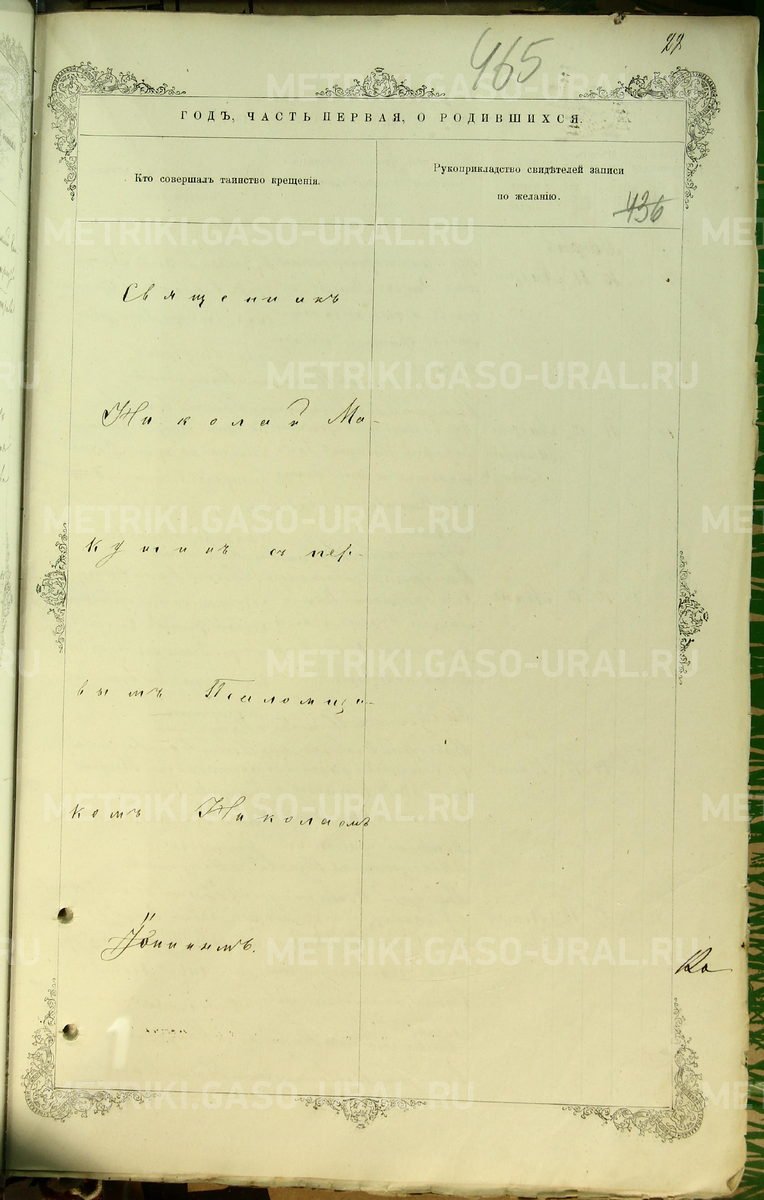 465
22
ГОДЪ, ЧАСТЬ ПЕРВАЯ, О РОДИВШИХСЯ.
Кто совершалъ таинство крещенія.
Рукоприкладство свидѣтелей записи
по желанію.
436
Священникъ
Николай Ма-
кушинъ съ пер-
вымъ Псаломщи-
комъ Николаемъ
METRIKI.GASO-URAL.RU
1